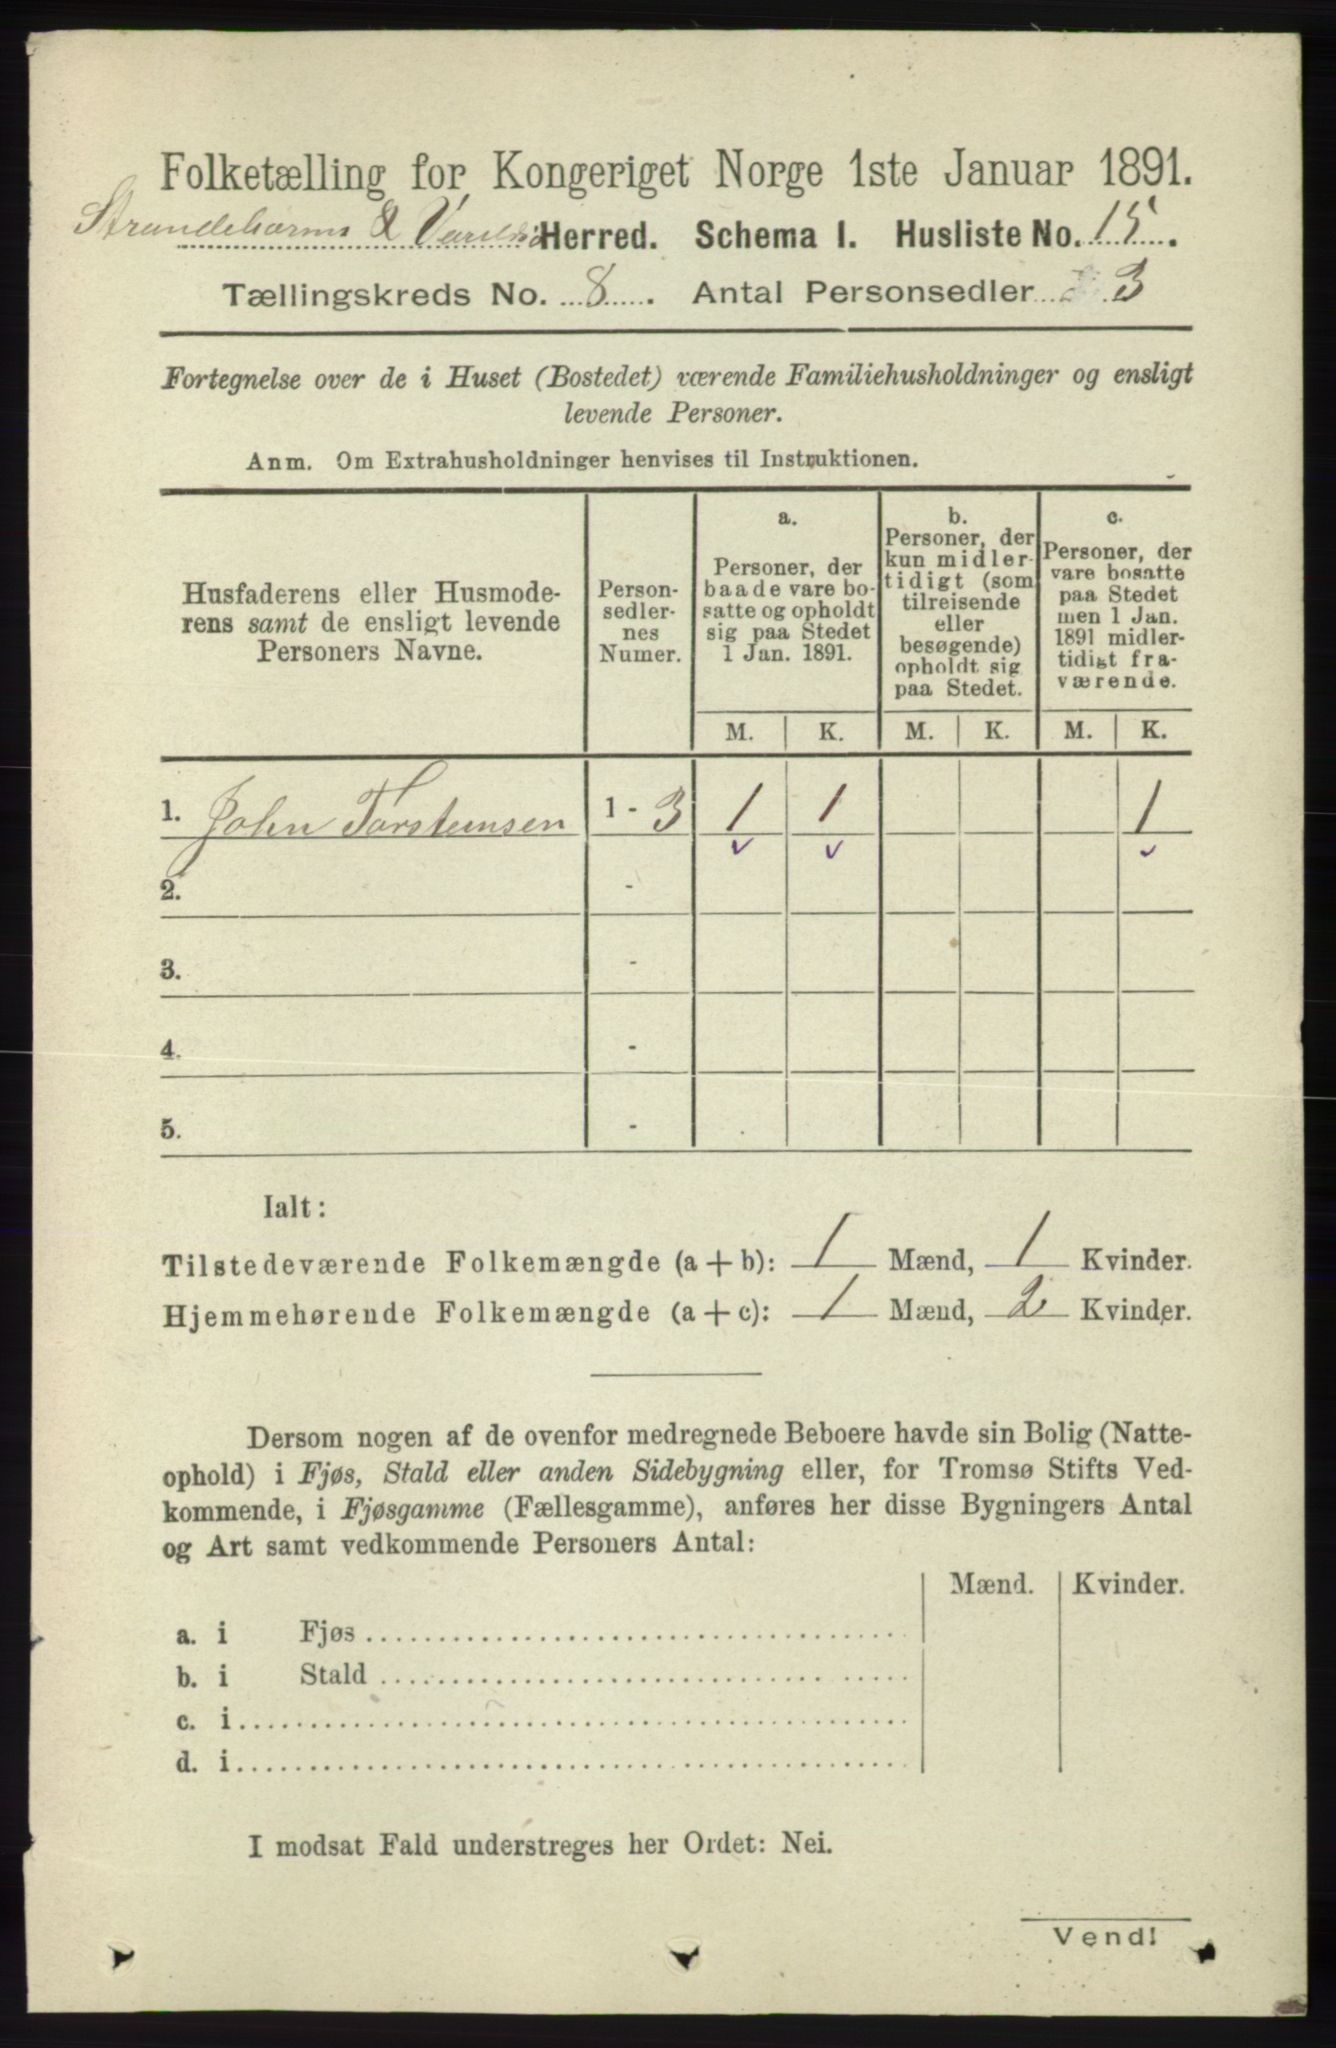 Folketælling for Kongeriget Norge 1ste Januar 1891.
Strandebarms & Varildsø Herred. Schema I. Husliste No. 15.
Tællingskreds No. 8. Antal Personsedler 3
Fortegnelse over de i Huset (Bostedet) værende Familiehusholdninger og ensligt
levende Personer.
Anm. Om Extrahusholdninger henvises til Instruktionen.
Husfaderens eller Husmode-
rens samt de ensligt levende
Personers Navne.
Person-
sedler-
nes
Numer.
a.
Personer, der
baade vare bo-
satte og opholdt
sig paa Stedet
1 Jan. 1891.
b.
Personer, der
kun midler-
tidigt (som
tilreisende
eller
besøgende)
opholdt sig
paa Stedet.
c.
Personer, der
vare bosatte
paa Stedet
men 1 Jan.
1891 midler-
tidigt fra-
værende.
M. K. M. K. M. K.
1. John Torsteinsen 1 - 3 1 1 1
2. -
3. -
4. -
5. -
Ialt:
Tilstedeværende Folkemængde (a + b): 1 Mænd, 1 Kvinder.
Hjemmehørende Folkemængde (a + c): 1 Mænd, 2 Kvinder.
Dersom nogen af de ovenfor medregnede Beboere havde sin Bolig (Natte-
ophold) i Fjøs, Stald eller anden Sidebygning eller, for Tromsø Stifts Ved-
kommende, i Fjøsgamme (Fællesgamme), anføres her disse Bygningers Antal
og Art samt vedkommende Personers Antal:
Mænd. Kvinder.
a. i Fjøs
b. i Stald
c. i
d. i
I modsat Fald understreges her Ordet: Nei.
Vend!